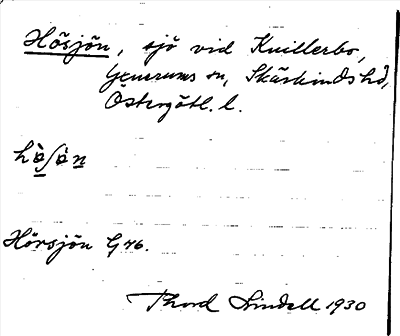 Hösjön, sjö vid Knillerbo,
Gcnerums sn, Skärkinds hd,
Östergötl. l.
hø̀ʃø̀n
Hörsjön G 46.
Thord Lindell 1930